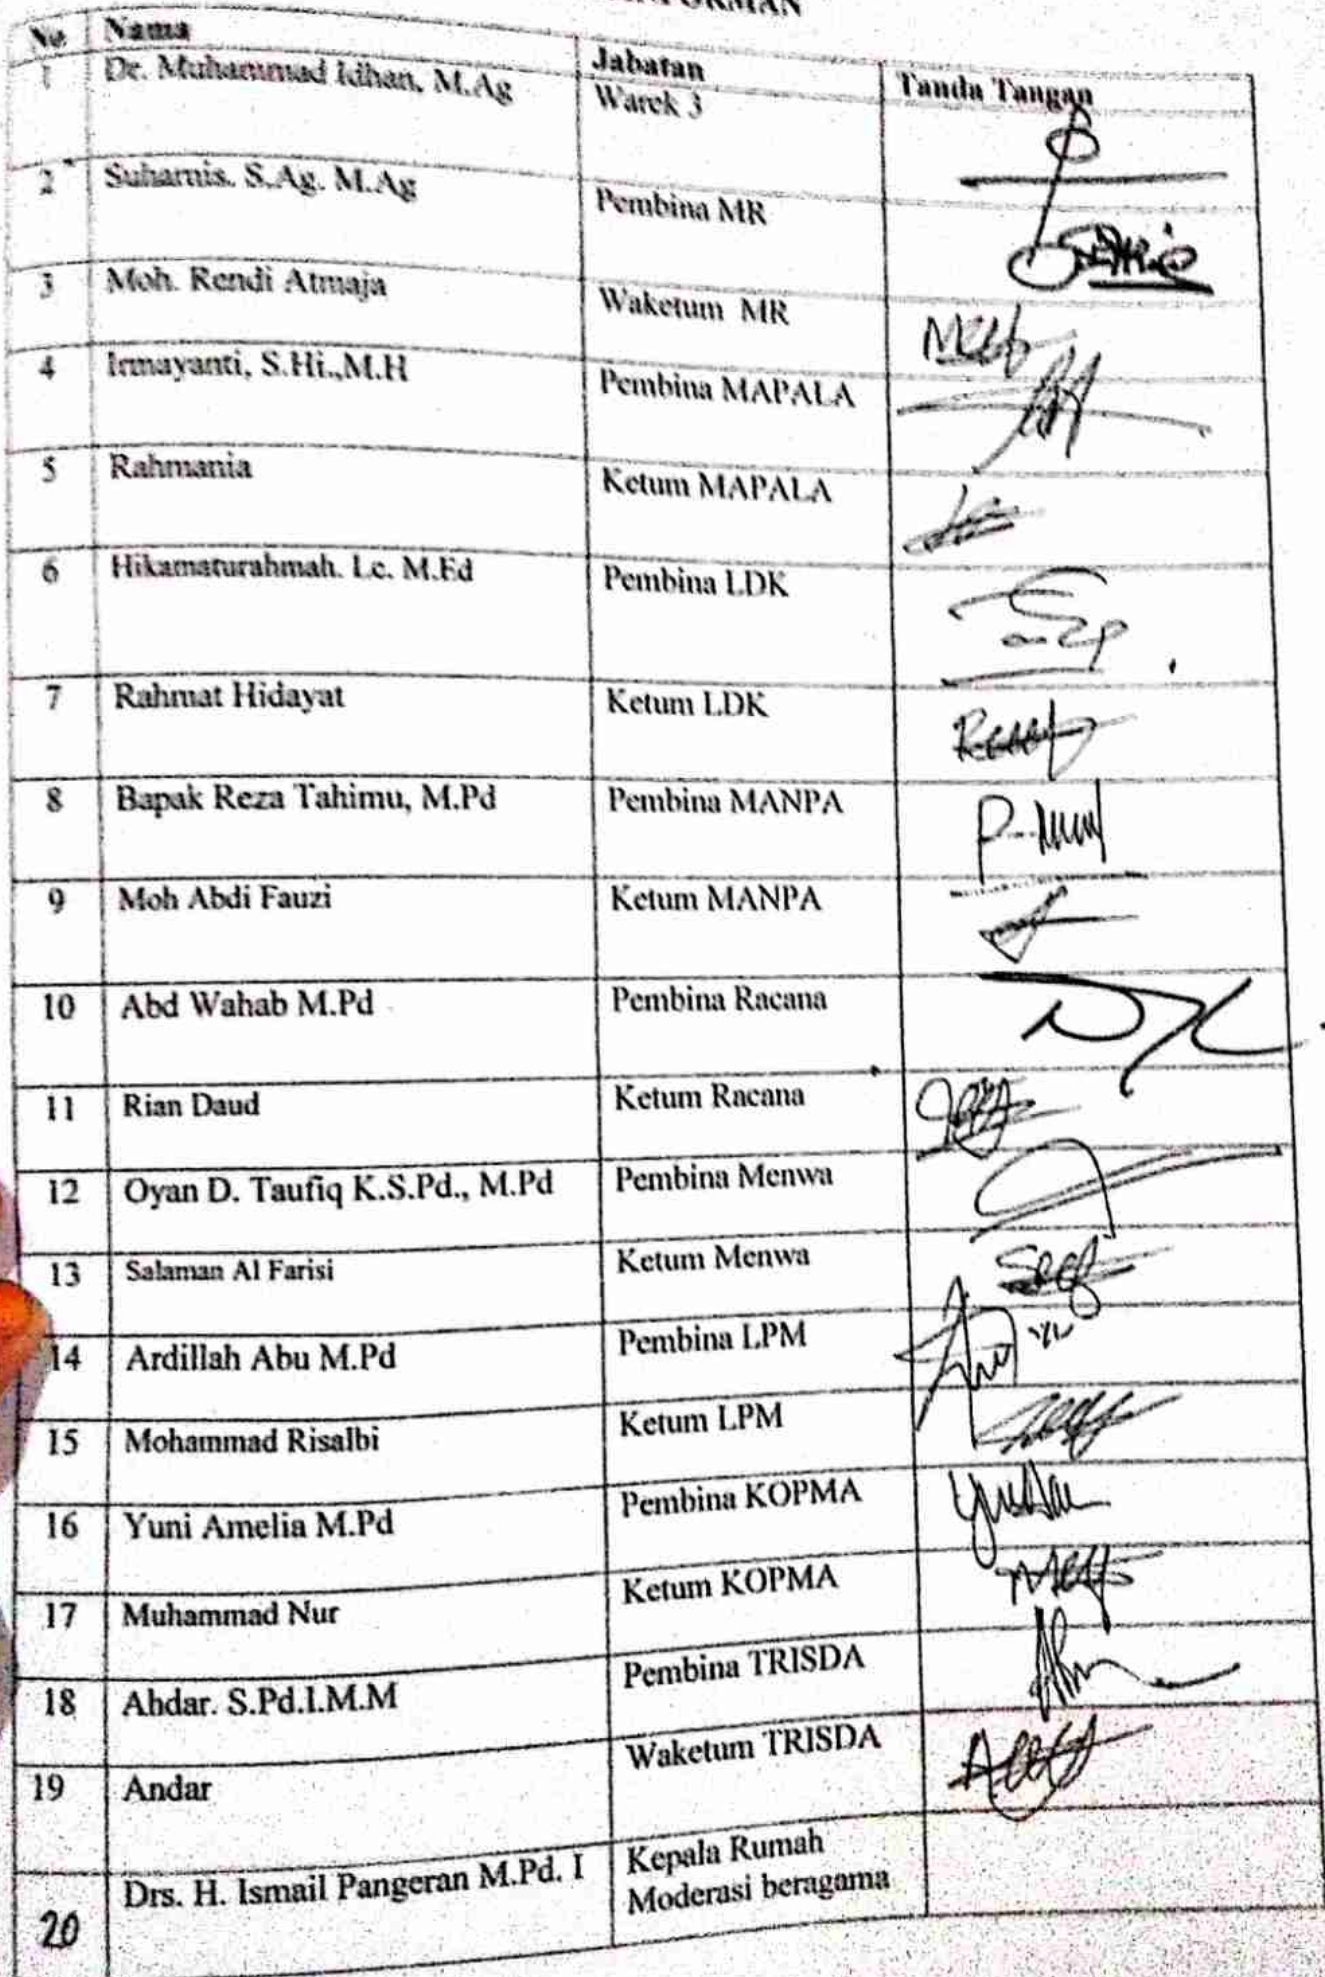 No Nama Jabatan Tanda Tangan
1 Dr. Muhammad Idhan, M.Ag Warek 3
2 Suharnis. S.Ag. M.Ag Pembina MR
3 Moh. Rendi Atmaja Waketum MR
4 Irmayanti, S.Hi.,M.H Pembina MAPALA
5 Rahmania Ketum MAPALA
6 Hikamaturahmah. Lc. M.Ed Pembina LDK
7 Rahmat Hidayat Ketum LDK
8 Bapak Reza Tahimu, M.Pd Pembina MANPA
9 Moh Abdi Fauzi Ketum MANPA
10 Abd Wahab M.Pd Pembina Racana
11 Rian Daud Ketum Racana
12 Oyan D. Taufiq K.S.Pd., M.Pd Pembina Menwa
13 Salaman Al Farisi Ketum Menwa
14 Ardillah Abu M.Pd Pembina LPM
15 Mohammad Risalbi Ketum LPM
16 Yuni Amelia M.Pd Pembina KOPMA
17 Muhammad Nur Ketum KOPMA
18 Abdar. S.Pd.I.M.M Pembina TRISDA
19 Andar Waketum TRISDA
20 Drs. H. Ismail Pangeran M.Pd. I Kepala Rumah
Moderasi beragama